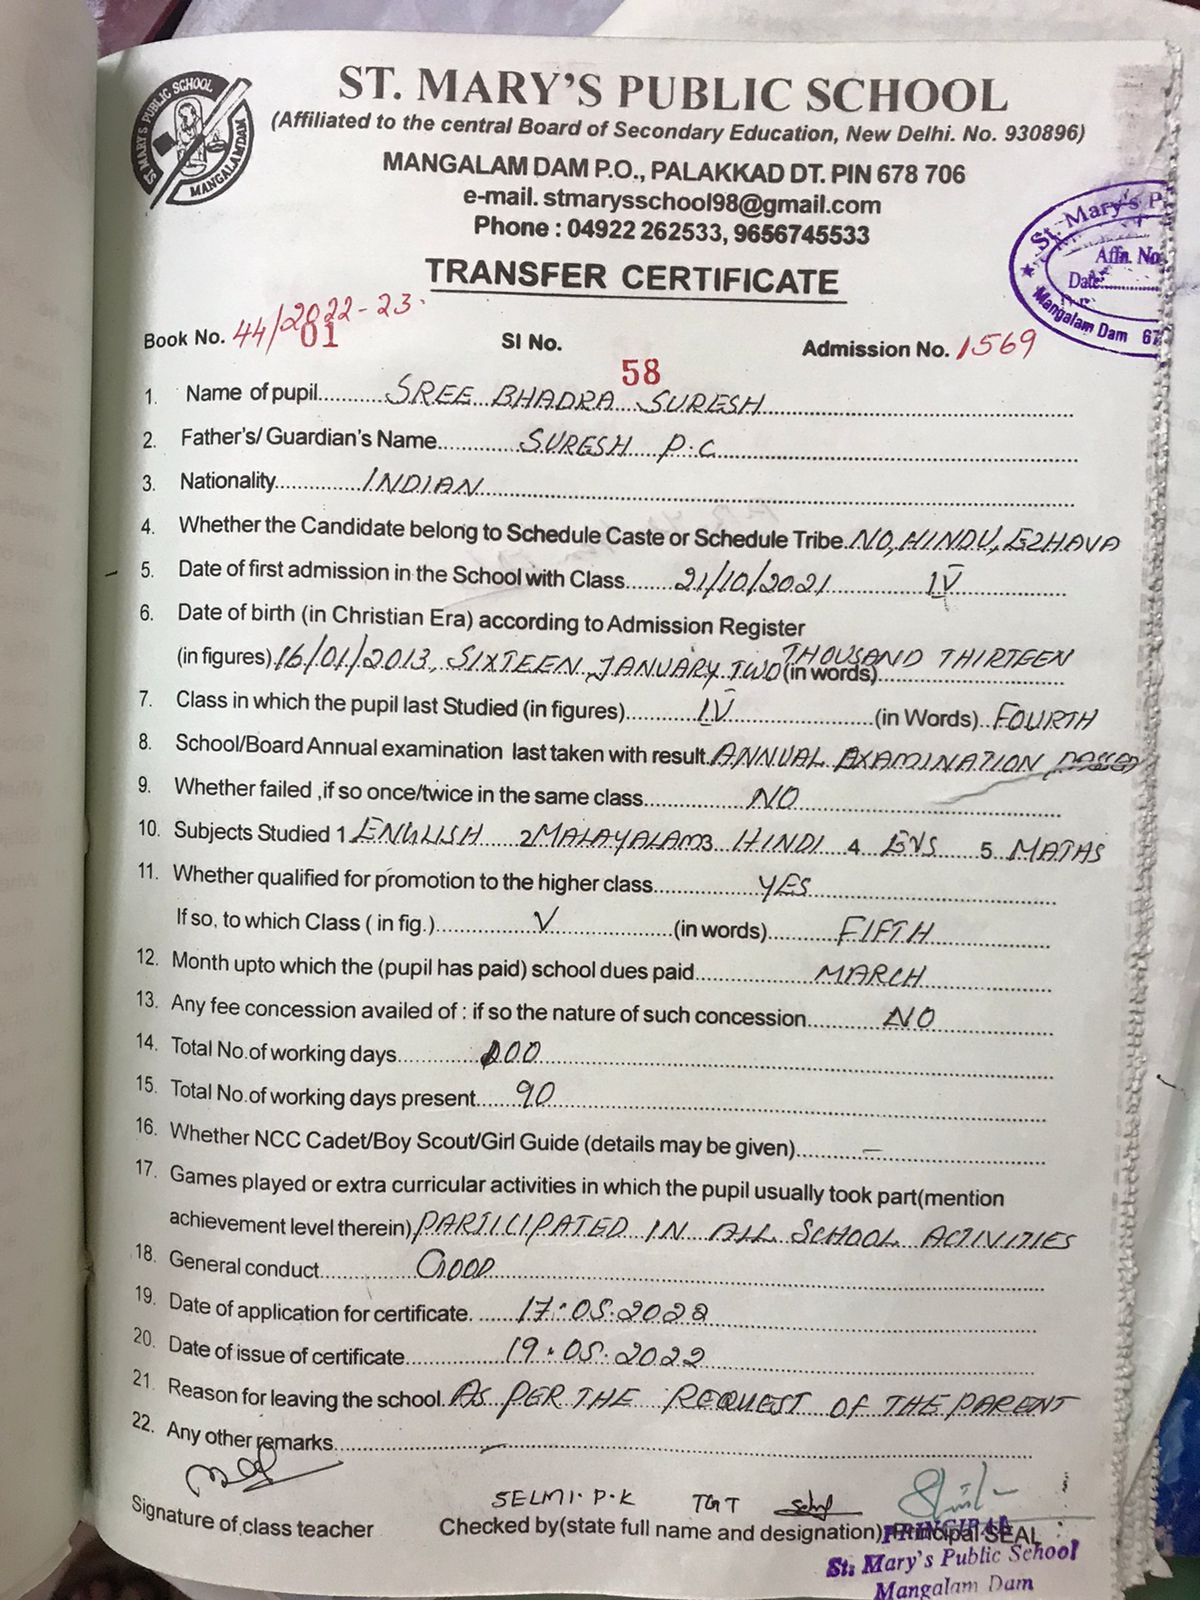 ST MARY'S PUBLIC SCHOOL
MANGALAMDAM
ST. MARY'S PUBLIC SCHOOL
(Affiliated to the central Board of Secondary Education, New Delhi. No. 930896)
MANGALAM DAM P.O., PALAKKAD DT. PIN 678 706
e-mail. stmarysschool98@gmail.com
Phone : 04922 262533, 9656745533
St. Mary's P
Affn. No
Date:
Mangalam Dam 67
TRANSFER CERTIFICATE
Book No. 44/2022-23. 01 SI No. 58 Admission No. 1569
1. Name of pupil SREE BHADRA SURESH
2. Father's/ Guardian's Name SURESH P.C
3. Nationality INDIAN
4. Whether the Candidate belong to Schedule Caste or Schedule Tribe NO, HINDU, EZHAVA
5. Date of first admission in the School with Class 21/10/2021 IV
6. Date of birth (in Christian Era) according to Admission Register
(in figures) 16/01/2013, SIXTEEN, JANUARY TWO (in words) THOUSAND THIRTEEN
7. Class in which the pupil last Studied (in figures) IV (in Words) FOURTH
8. School/Board Annual examination last taken with result ANNUAL EXAMINATION PASSED
9. Whether failed ,if so once/twice in the same class NO
10. Subjects Studied 1 ENGLISH 2 MALAYALAM 3 HINDI 4 EVS 5 MATHS
11. Whether qualified for promotion to the higher class YES
If so, to which Class ( in fig.) V (in words) FIFTH
12. Month upto which the (pupil has paid) school dues paid MARCH
13. Any fee concession availed of : if so the nature of such concession NO
14. Total No.of working days 100
15. Total No.of working days present 90
16. Whether NCC Cadet/Boy Scout/Girl Guide (details may be given) —
17. Games played or extra curricular activities in which the pupil usually took part(mention
achievement level therein) PARTICIPATED IN ALL SCHOOL ACTIVITIES
18. General conduct GOOD
19. Date of application for certificate. 17.05.2022
20. Date of issue of certificate 19.05.2022
21. Reason for leaving the school. AS PER THE REQUEST OF THE PARENT
22. Any other remarks —
SELMI. P.K TGT
Signature of class teacher Checked by(state full name and designation) Principal SEAL
PRINCIPAL
St. Mary's Public School
Mangalam Dam